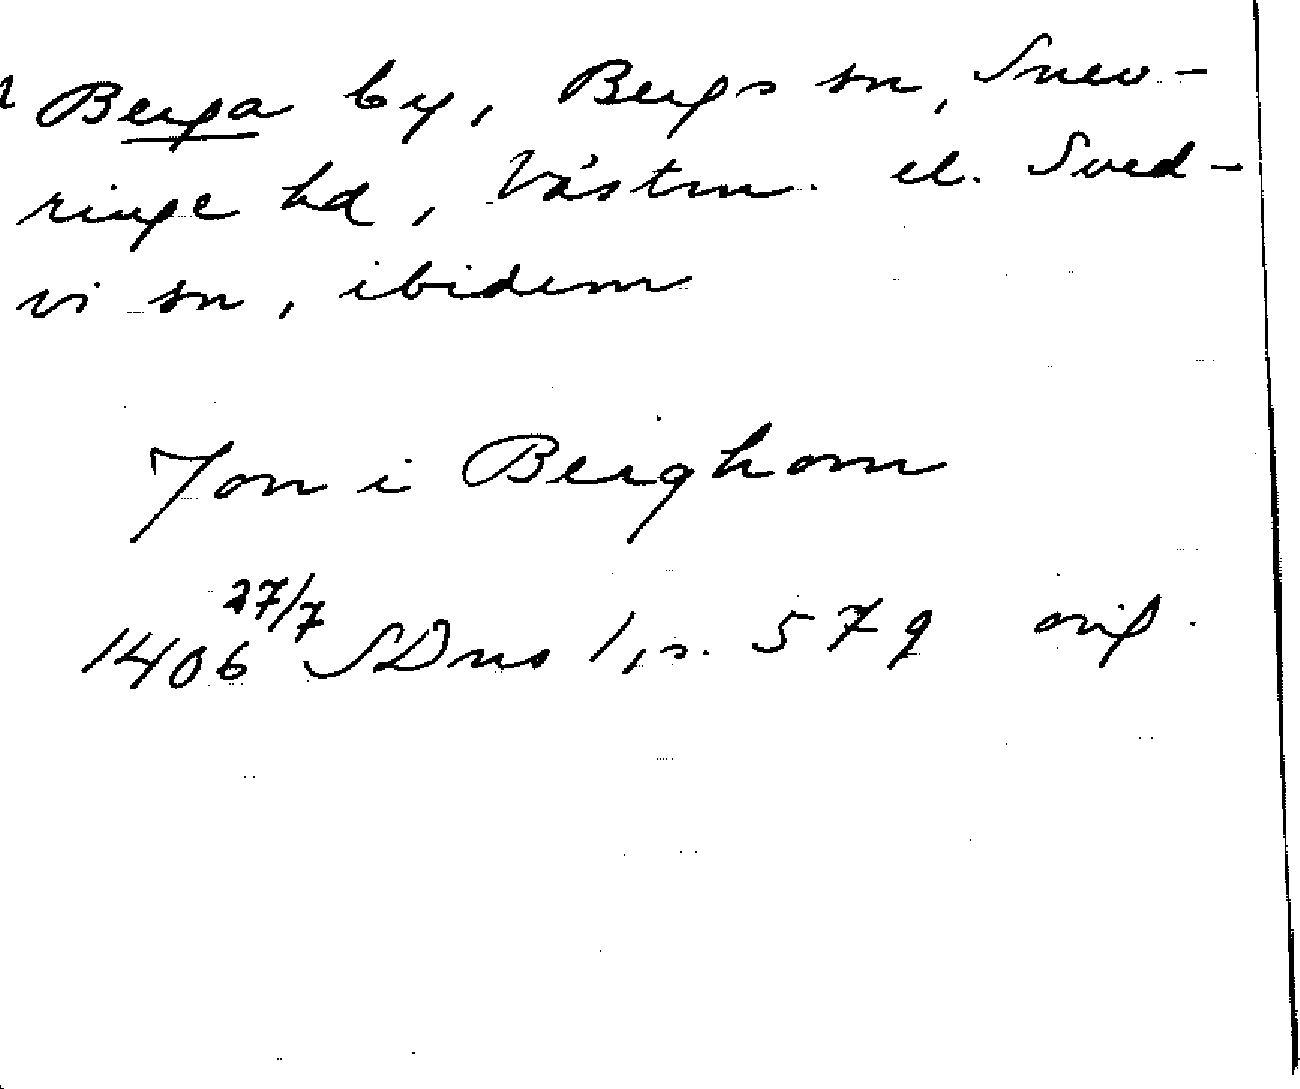 Berga by, Bergs sn, Snev-
ringe hd, Västm. el. Sved-
vi sn, ibidem
Jon i Berghom
1406 27/7 SDns 1, s. 579 orig.